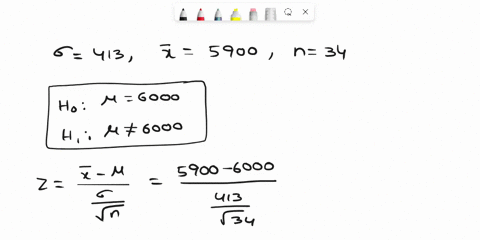 σ = 413, x̄ = 5900, n = 34
H₀: μ = 6000
H₁: μ ≠ 6000
z = (x̄ - μ) / (σ / √n) = (5900 - 6000) / (413 / √34)